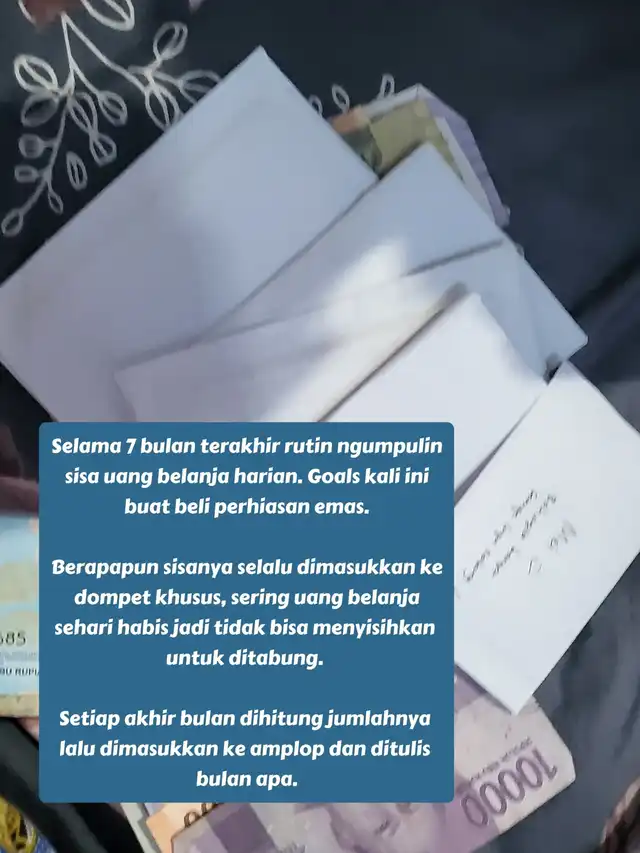 Selama 7 bulan terakhir rutin ngumpulin
sisa uang belanja harian. Goals kali ini
buat beli perhiasan emas.
Berapapun sisanya selalu dimasukkan ke
dompet khusus, sering uang belanja
sehari habis jadi tidak bisa menyisihkan
untuk ditabung.
Setiap akhir bulan dihitung jumlahnya
lalu dimasukkan ke amplop dan ditulis
bulan apa.
10000